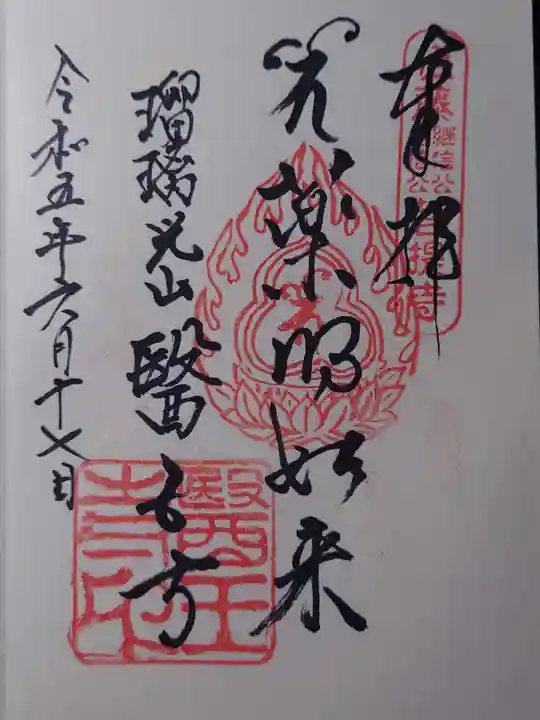 奉拝
佐藤継信公
菩提寺
薬師如来
瑠璃光山醫王寺
醫王寺印
令和五年六月十七日